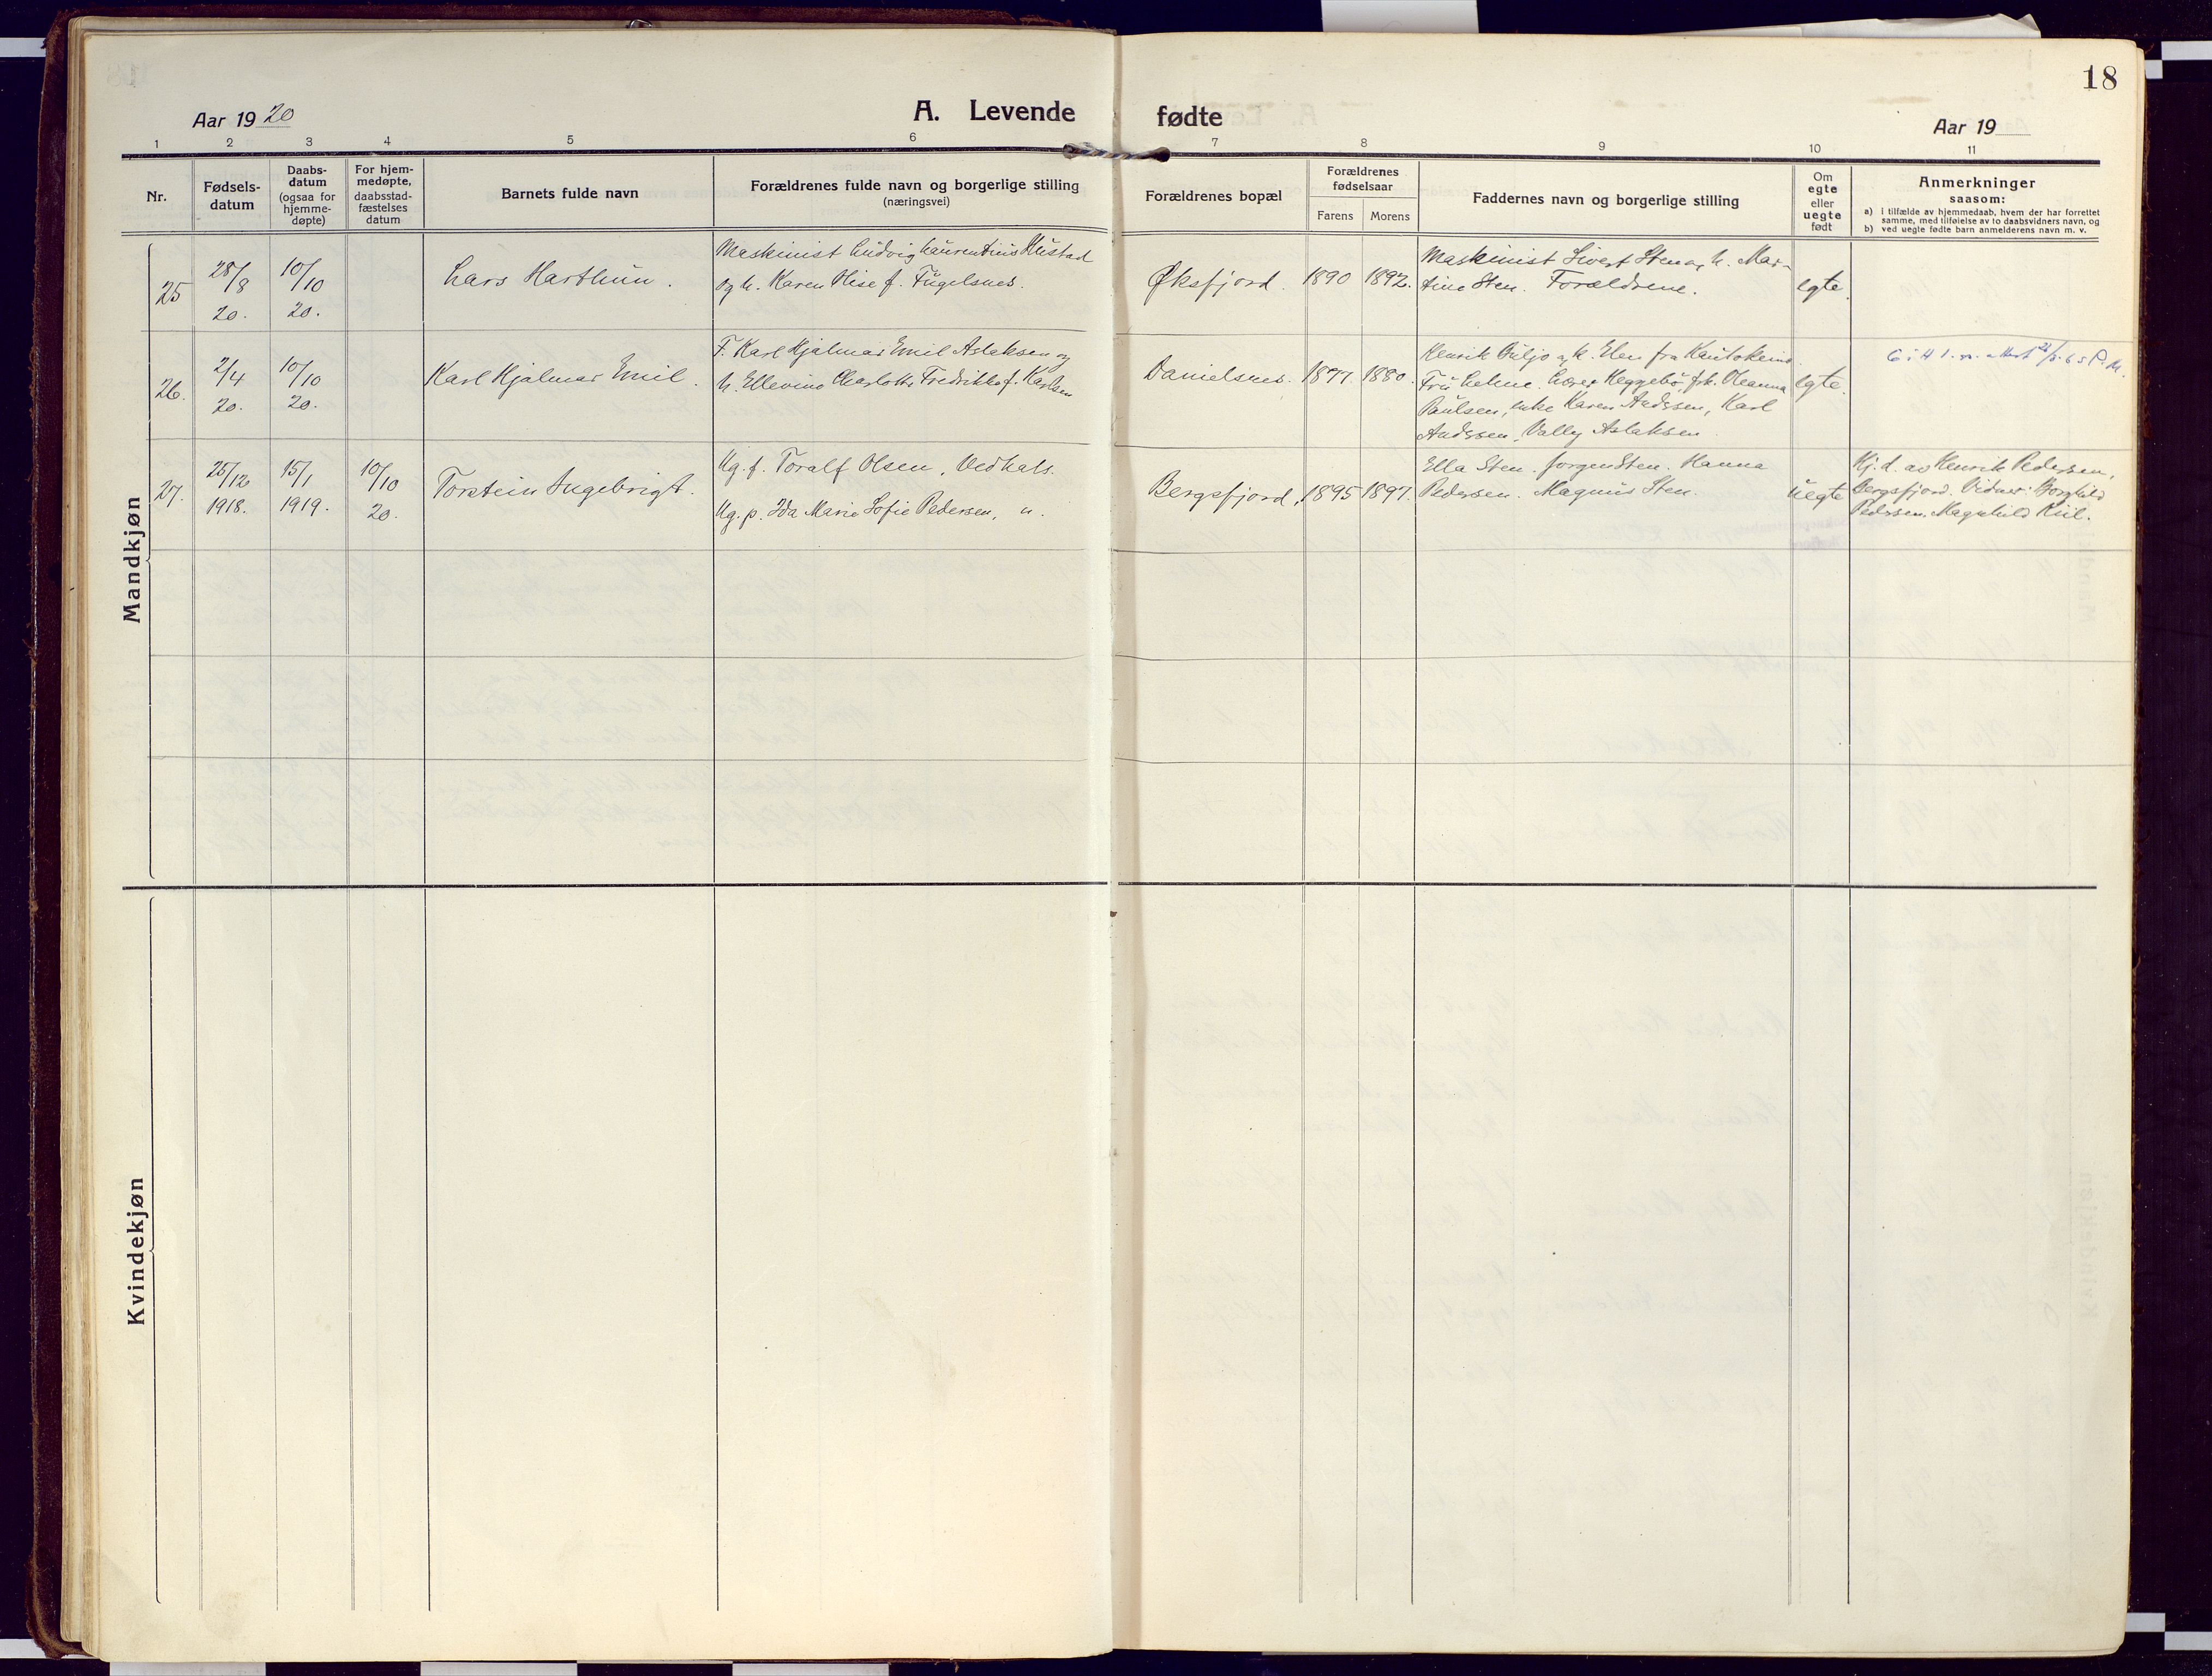 18
Aar 1920
A. Levende fødte
Aar 19
1 2 3 4 5 6 7 8 9 10 11
Nr.
Fødsels-
datum
Daabs-
datum
(ogsaa for
hjemme-
døpte)
For hjem-
medøpte,
daabsstad-
fæstelses
datum
Barnets fulde navn
Forældrenes fulde navn og borgerlige stilling
(næringsvei)
Forældrenes bopæl
Forældrenes
fødselsaar
Farens Morens
Faddernes navn og borgerlige stilling
Om
egte
eller
uegte
født
Anmerkninger
saasom:
a) i tilfælde av hjemmedaab, hvem der har forrettet
samme, med tilføielse av to daabsvidners navn, og
b) ved uegte fødte barn anmelderens navn m. v.
Mandkjøn
25
28/8
20.
10/10
20.
Lars Harthun.
Maskinist Ludvig Laurentius Hustad
og h. Karen Elise f. Fugelsnes.
Øksfjord.
1890
1892.
Maskinist Sivert Sten og h. Mar-
tine Sten. Forældrene.
egte.
26.
2/4
20.
10/10
20.
Karl Hjalmar Emil.
F. Karl Hjalmar Emil Aslaksen og
h. Ellevine Charlotte Fredrikke f. Karlsen
Danielsnes.
1877
1880.
Henrik Buljo og h. Elen fra Kautokeino.
Fru Lehne. Lærer Heggebø, frk. Oleanna
Paulsen, enke Karen Anderssen, Karl
Anderssen, Vally Aslaksen
egte.
27.
25/12
1918.
15/1
1919.
10/10
20.
Torstein Ingebrigt.
Ug. f. Toralf Olsen, Vedhals.
Ug. p. Ida Marie Sofie Pedersen, u.
Bergsfjord.
1895
1897.
Ella Sten. Jørgen Sten. Hanna
Pedersen. Magnus Sten.
uegte
Hj. d. av Henrik Pedersen,
Bergsfjord. Vidner: Borghild
Pedersen. Magnhild Kiil.
Kvindekjøn